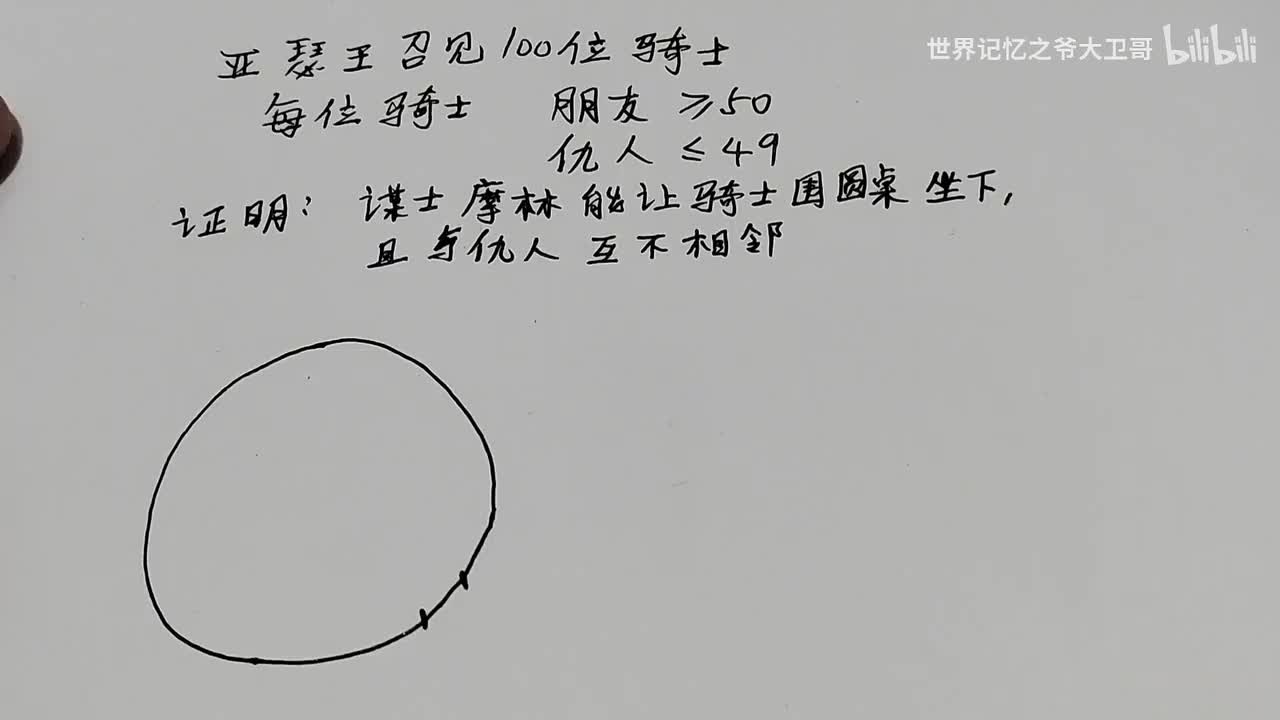 世界记忆之爷大卫哥 bilibili
亚瑟王召见100位骑士
每位骑士 朋友 ≥50
仇人 ≤49
证明：谋士摩林能让骑士围圆桌坐下，
且与仇人互不相邻